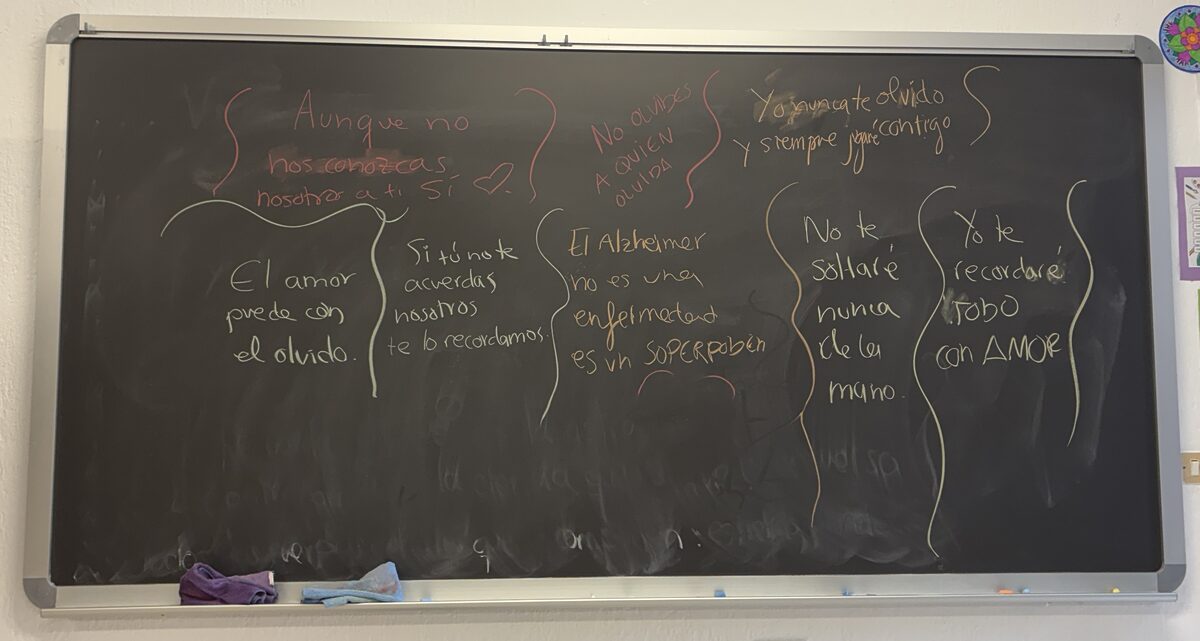 Aunque no
nos conozcas
nosotros a ti Sí
No olvides
A QUIEN
OLVIDA
Yo nunca te olvido
y siempre jugaré contigo
El amor
puede con
el olvido.
Si tú no te
acuerdas
nosotros
te lo recordamos.
El Alzheimer
no es una
enfermedad
es un
No te
soltaré
nunca
de la
mano.
Yo te
recordaré
TODO
con AMOR